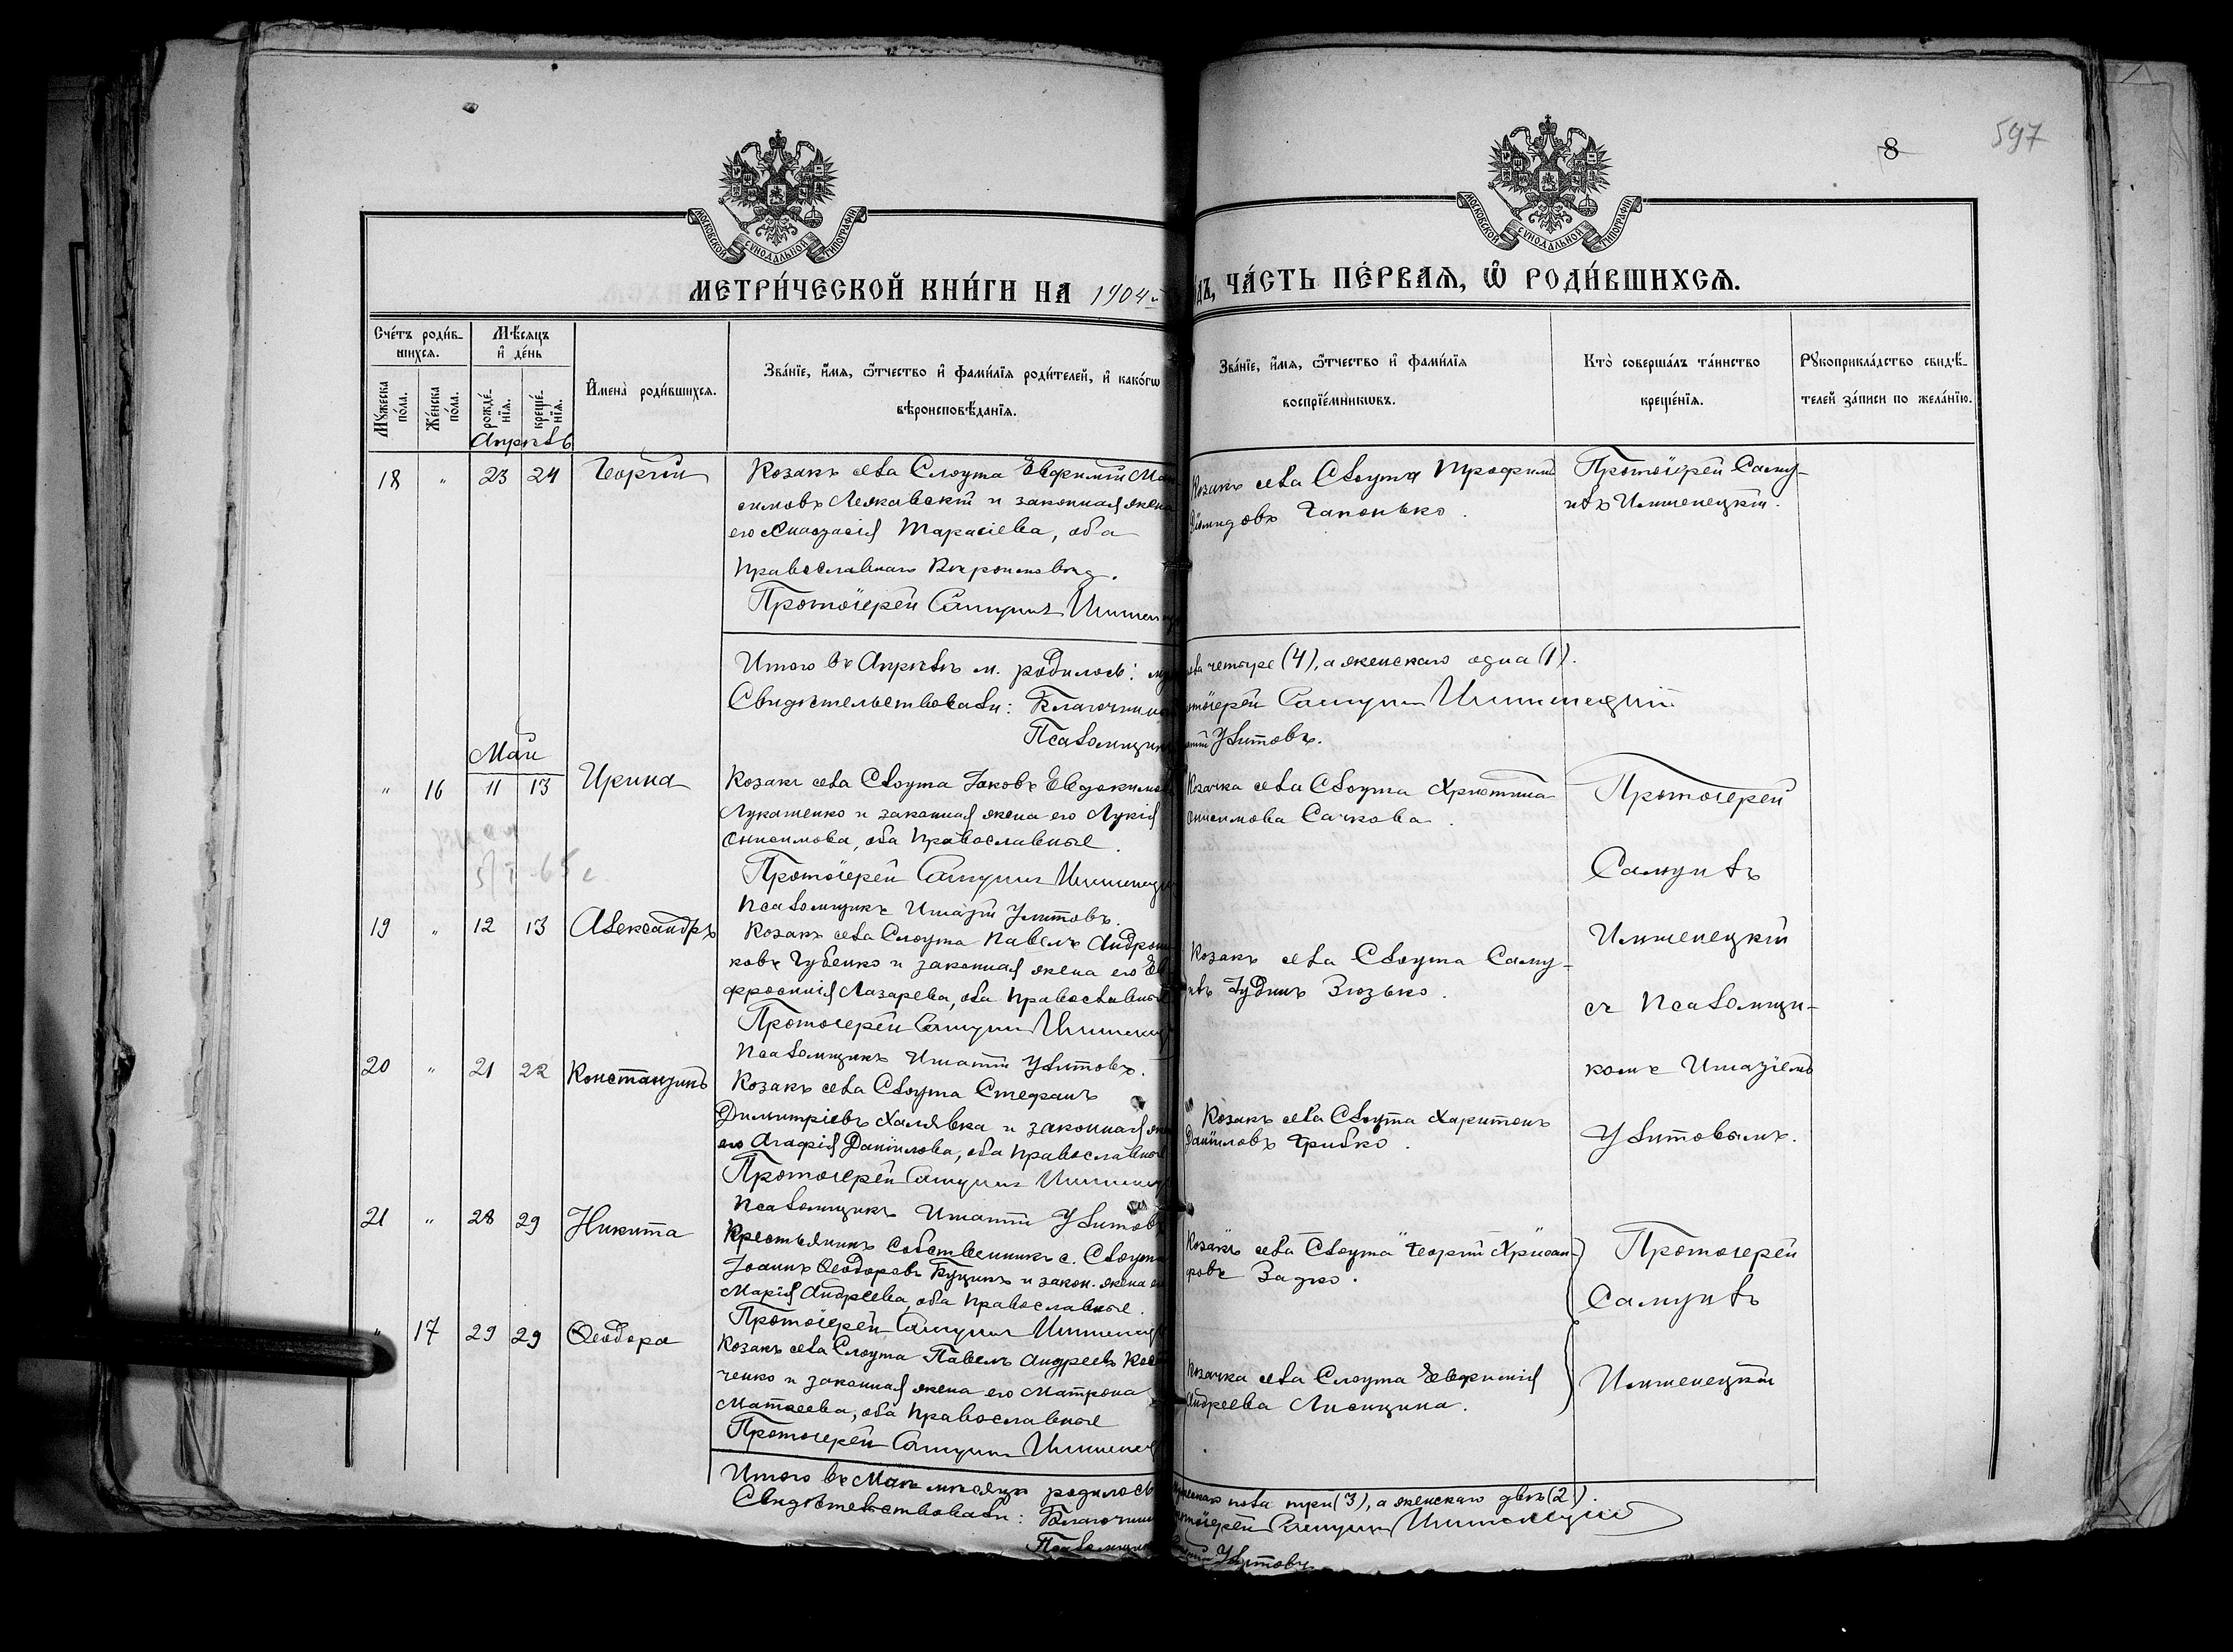 8
597
МОСКОВСКОЙ СѴНОДАЛЬНОЙ ТИПОГРАФІИ
МОСКОВСКОЙ СѴНОДАЛЬНОЙ ТИПОГРАФІИ
МЕТРИ́ЧЕСКОЙ КНИ́ГИ НА 1904 й
ДЪ, ЧА́СТЬ ПЕ́РВАѦ, Ѡ҆ РОДИ́ВШИХСѦ.
Сче́тъ роди́в-
шихся.
Мѣ́сяцъ
и҆ де́нь
Му́жеска
по́ла.
Же́нска
по́ла.
рожде́-
нїя.
креще́-
нїя.
И҆мена̀ роди́вшихся.
Зва́нїе, и҆́мя, ѻ҆́тчество и҆ фами́лїя роди́телей, и҆ како́гѡ
вѣроисповѣ́данїя.
Зва́нїе, и҆́мя, ѻ҆́тчество и҆ фами́лїя
воспрїе́мникѡвъ.
Кто̀ соверша́лъ та́инство
креще́нїя.
Рꙋкоприкла́дство свидѣ́-
телей за́писи по жела́нїю.
Апрѣль
18 " 23 24 Георгій
Козакъ села Слоута Евфимій Мак
симовъ Лежавскій и законная жена
его Анастасія Тарасіева, оба
православнаго вѣроисповѣд.
Протоіерей Самуилъ Имшенец
Козакъ села Слоута Трофимъ
Діомидовъ Гапонько.
Протоіерей Саму-
илъ Имшенецкій.
Итого въ Апрѣлѣ м. родилось: му
пола четыре (4), а женскаго одна (1).
Свидѣтельствовали: Благочинный
отоіерей Самуилъ Имшенецкій
Псаломщикъ
Улитовъ.
Май
" 16 11 13 Ирина
Козакъ села Слоута Іаковъ Евдокимовъ
Лукашенко и законная жена его Лукія
Онисимова, оба православные.
Протоіерей Самуилъ Имшенецк
Псаломщикъ Игнатій Улитовъ.
Козачка села Слоута Христина
Онисимова Сачкова.
Протоіерей
Самуилъ
Имшенецкій
съ псаломщи-
комъ Игнатіемъ
Улитовымъ.
19 " 12 13 Александръ
Козакъ села Слоута Павелъ Андрони
ковъ Губенко и законная жена его Ев
фросинія Лазарева, оба православные
Протоіерей Самуилъ Имшенец
Псаломщикъ Игнатій Улитовъ.
Козакъ села Слоута Саму-
илъ Іудинъ Зюзько.
20 " 21 22 Константинъ
Козакъ села Слоута Стефанъ
Димитріевъ Халявка и законная же
его Агафія Даніилова, оба православные
Протоіерей Самуилъ Имшенец
Псаломщикъ Игнатій Улитовъ
Козакъ села Слоута Харитонъ
Даніиловъ Грибко.
21 " 28 29 Никита
Крестьянинъ собственникъ с. Слоута
Іоаннъ Ѳеодоровъ Буцикъ и закон. жена е
Марія Андреева, оба православные.
Протоіерей Самуилъ Имшенец
Козакъ села Слоута Георгій Хрисан-
фовъ Задко.
Протоіерей
Самуилъ
Имшенецкій
" 17 29 29 Ѳеодора
Козакъ села Слоута Павелъ Андреевъ Кос
ченко и законная жена его Матрона
Матѳеева, оба православные
Протоіерей Самуилъ Имшенец
Козачка села Слоута Евфимія
Андреева Лисицина.
Итого въ Маѣ мѣсяцѣ родилось
жескаго пола три (3), а женскаго двѣ (2).
Свидѣтельствовали: Благочин
отоіерей Самуилъ Имшенецкій
Псаломщик
Улитовъ